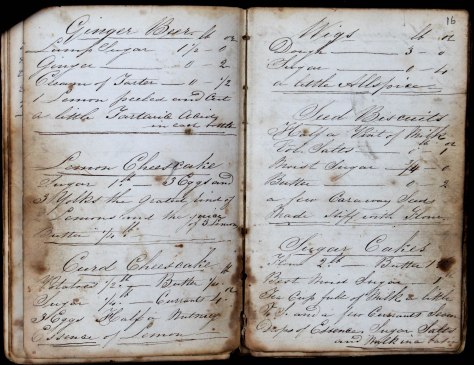 Ginger Beer lb oz
Lump Sugar 1½ - 0
Ginger - 0 - 2
Cream of Tarter - 0 - ½
1 Lemon peeled and Cut
a little Tartaric Acid
in each bottle
Lemon Cheescake
Sugar 1 lb - 3 Eggs and
3 Yolks the grated rind of
Lemons and the juice
of 3 Lemons
Butter ¼ lb
Curd Cheescake
½ lb - Butter
Sugar - Currants 4 oz
3 Eggs Half a Nutmeg
Essence of Lemon
16
Wigs lb oz
Dough - 3 - 0
Sugar - 0 - 4
a little Allspice
Seed Bescuits
Half a Pint of Milk
Vol. Salts lb oz
Moist Sugar - ¾ - 0
Butter - 0 - 2
a few Caraway Seeds
Made Stiff with Flour
Sugar Cakes
2 lb Butter 1
Best Moist Sugar
Tea Cup full of Milk a little
and a few Currants
Drops of Essence Sugar
and